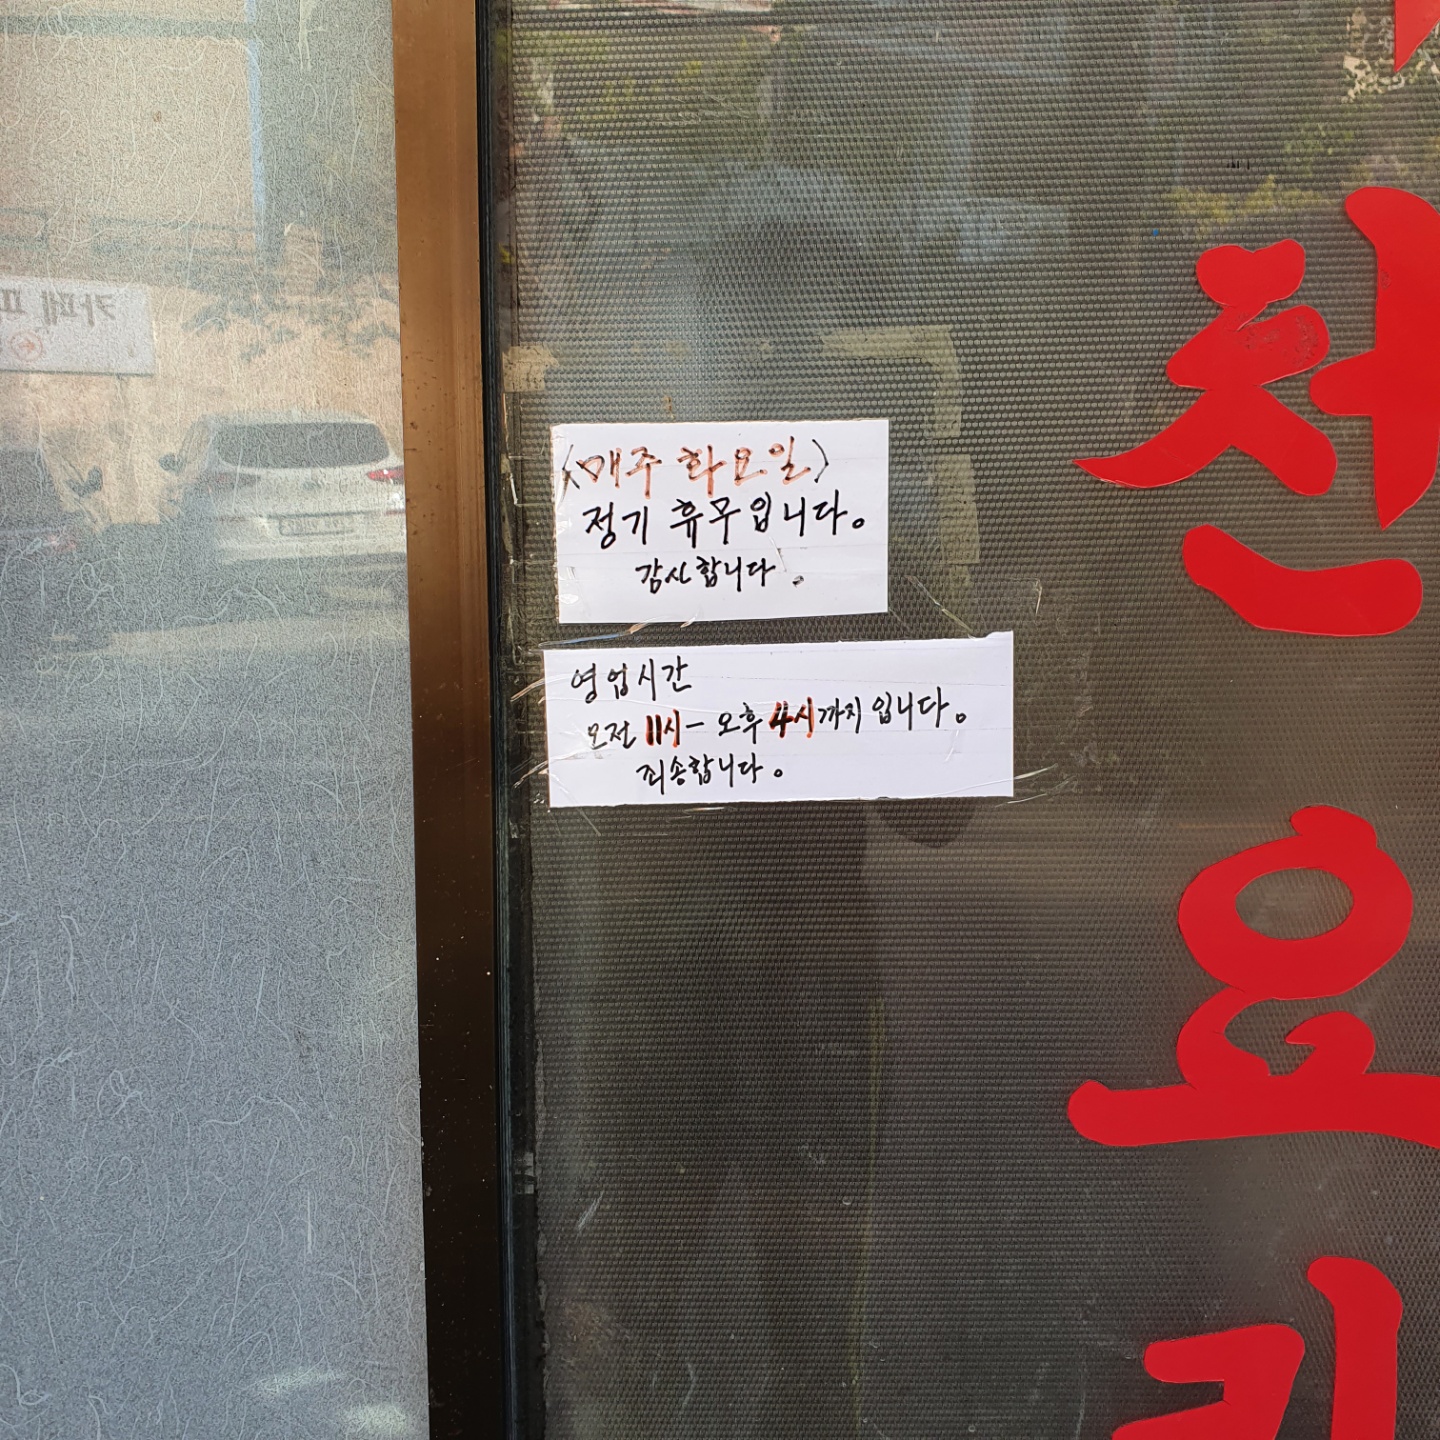 <매주 화요일>
정기 휴무입니다.
감사합니다.
영업시간
오전 11시 - 오후 4시까지 입니다.
죄송합니다.
천
요
리